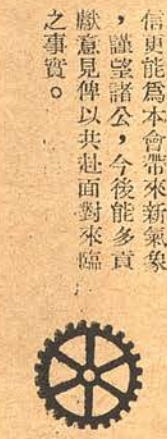 信更能爲本會帶來新氣象
，謹望諸公，今後能多貢
獻意見俾以共赴面對來臨
之事實。